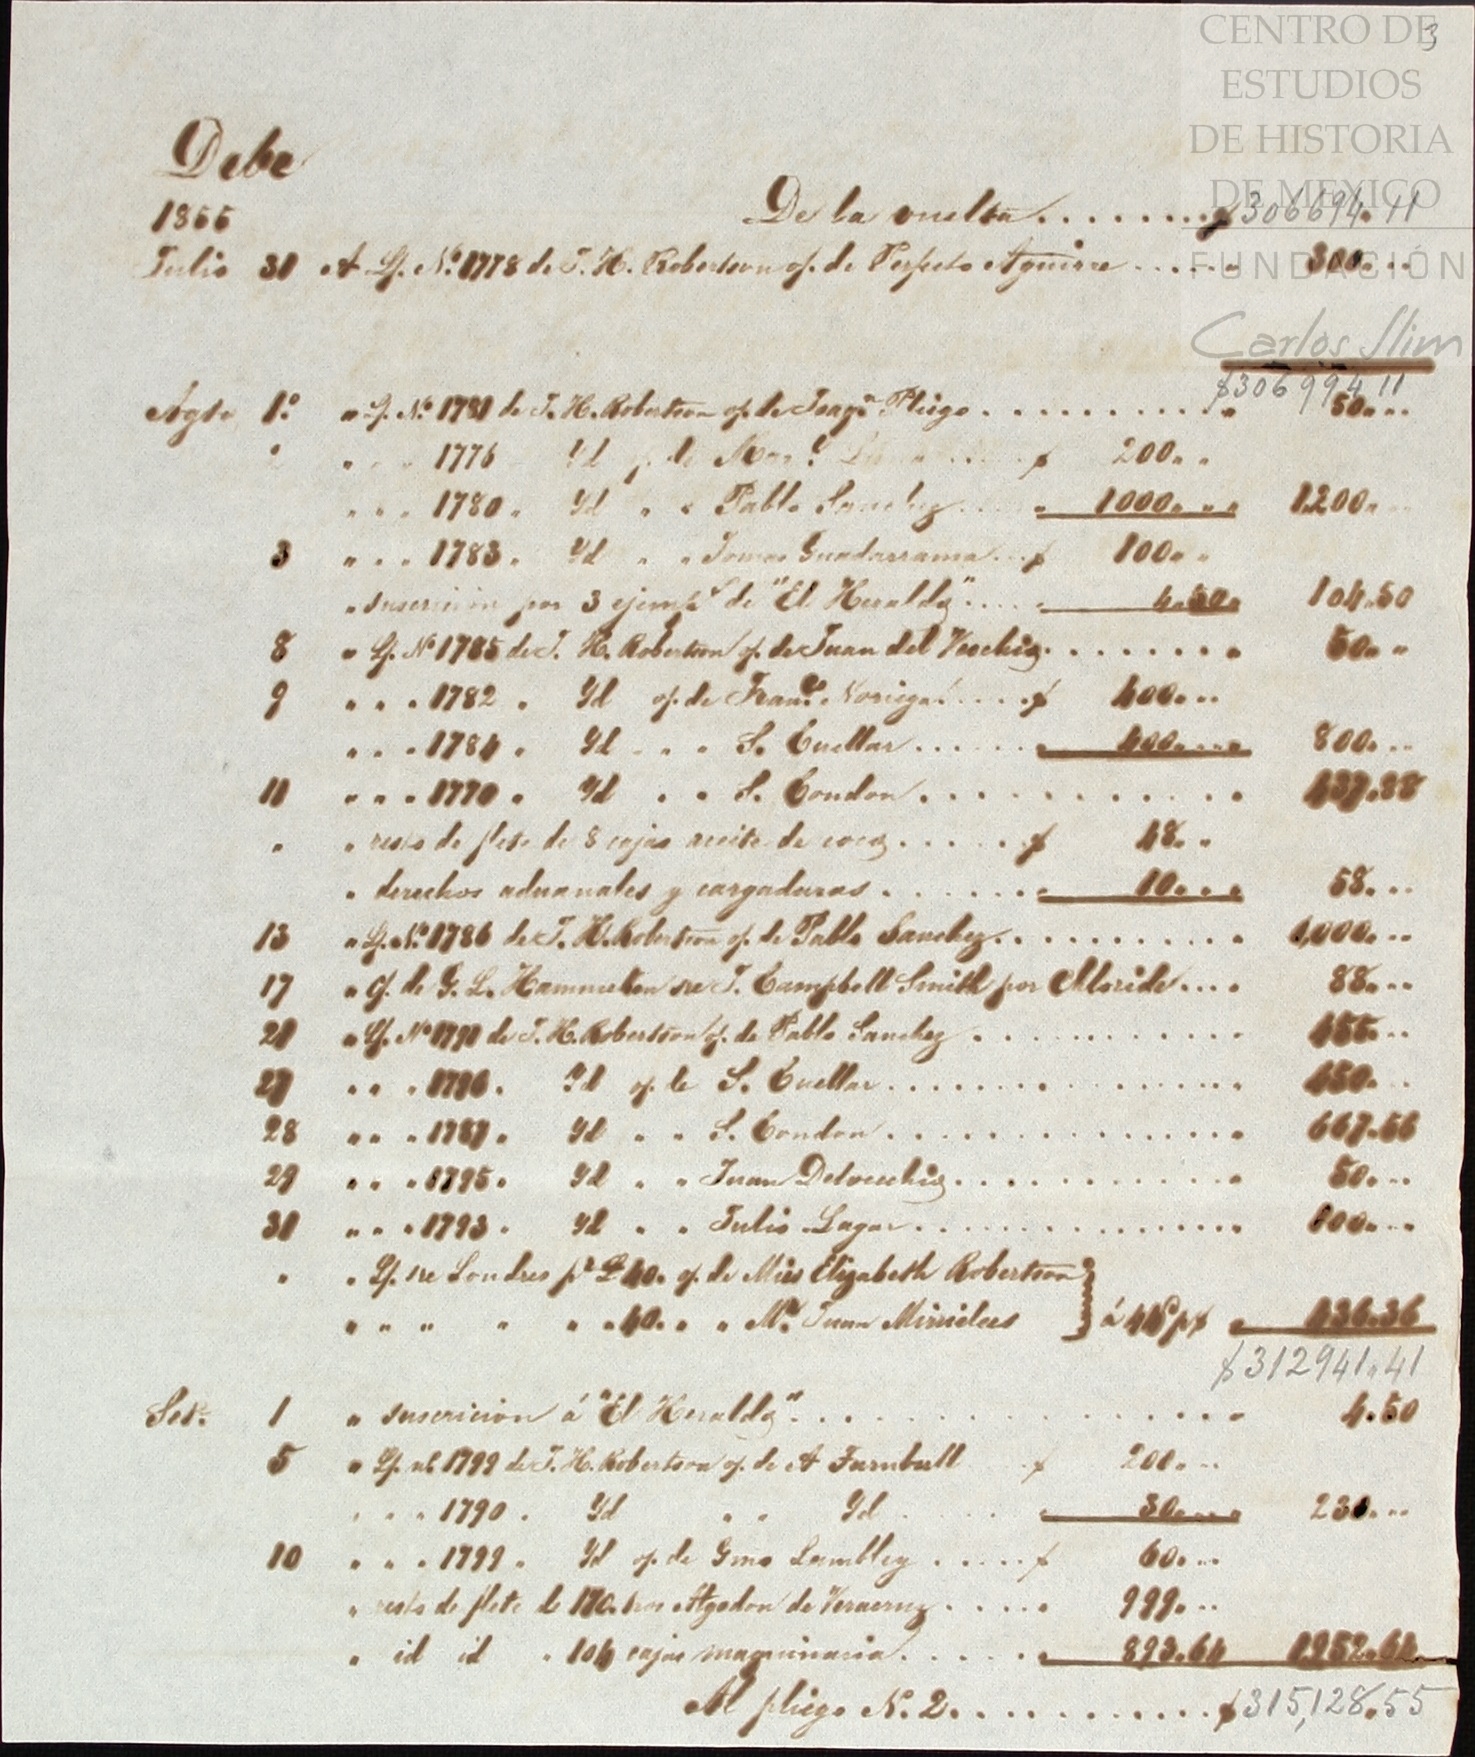 3
CENTRO DE
ESTUDIOS
DE HISTORIA
DE MEXICO
FUNDACIÓN
Carlos Slim
Debe
1855
De la vuelta . . . . . . . . $306694.11
Julio 31 A Lf. No. 1778 de J. H. Robertson of. de Perfecto Aguirre . . . . . 300. . .
$306994 11
Agto 1º " Lf. No. 1781 de J. H. Robertson of. de Joaqn Pliego . . . . . . . . . . 50. . .
2 " " " 1776 Yd of. de . . . . $ 200. . .
" " " 1780 " Yd " " Pablo Sanchez . . . " 1000. . . 1.200. . .
3 " " " 1783 " Yd " " Tomas Guadarrama . . $ 100. . .
" suscricion por 3 ejempls de "El Heraldo" . . . . 4.50 104.50
8 " Lf. No 1785 de J. H. Robertson of. de Juan del Vecchio . . . . . . . " 50. . .
9 " " " 1782 " Yd of. de Franco. Noriega . . . . $ 400. . .
" " " 1784 " Yd " " S. Cuellar . . . . . . " 400. . . 800. . .
11 " " " 1770 " Yd " " S. Condon . . . . . . . . . . . . 437.88
" " resto de flete de 8 cajas aceite de coco . . . . . $ 48. . .
" derechos aduanales y cargaduras . . . . . . " 10. . . 58. . .
13 " Lf. No. 1786 de J. H. Robertson of. de Pablo Sanchez . . . . . . . . . . 1,000. . .
17 " of. de G. L. Hammeken sre J. Campbell Smith por Cloride . . . . 88. . .
21 " Lf. No 1791 de J. H. Robertson of. de Pablo Sanchez . . . . . . . . . . . 455. . .
27 " " " 1796. Yd of. de S. Cuellar . . . . . . . . . . . . . . . 450. . .
28 " " " 1787 " Yd " " S. Condon . . . . . . . . . . . . . . . 667.56
29 " " " 1795 " Yd " " Juan Delvecchio . . . . . . . . . . . . 50. . .
31 " " " 1793 " Yd " " Julio Lagar . . . . . . . . . . . . . . 100. . .
" " Lf. sre Londres pr £ 40. of. de Miss Elizabeth Robertson
" " " " " " 40. " " Mr. Juan á 44 p$ " 436.36
$312941.41
Set. 1 " suscricion á "El Heraldo" . . . . . . . . . . . . . . . . . 4.50
5 " Lf. no. 1799 de J. H. Robertson of. de A Turnbull $ 200. . .
" " " 1790 " Yd " " Yd . . . . . " 30. . . 230. . .
10 " " " 1799 " Yd of. de Gmo Lumbley . . . . . $ 60. . .
" resto de flete de 170. tros Algodon de Veracruz . . . . . 999. . .
" id id " 104 cajas maquinaria . . . . . . " 893.64 1952.64
Al pliego No. 2 . . . . . . . . . . . $315,128.55